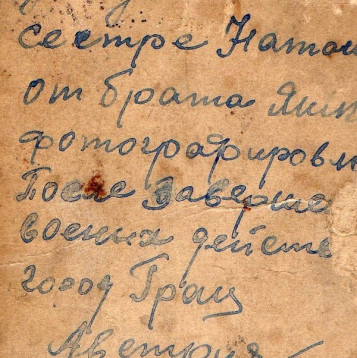 сестре Наташ
от брата Яши
фотографировл
После заверше
военных действ
город Грац
Австрия